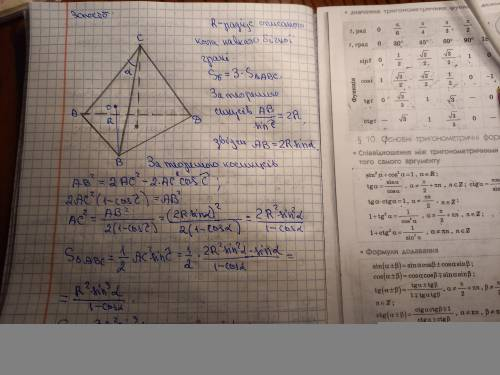 3 спосіб
R-радіус описаного
кола навколо бічної
грані
Sб = 3·S△ABC
За теоремою
синусів AB/sin C = 2R
звідси AB = 2R sinα
C
α
A
O
R
B
B
За теоремою косинусів
AB² = 2AC² - 2·AC² cos C;
2AC²(1-cos C) = AB²
AC² = AB²/2(1-cos C) = (2R sinα)²/2(1-cosα) = 2R² sin²α/1-cosα
S△ABC = 1/2 AC² sin C = 1/2 · 2R² sin²α · sinα/1-cosα =
= R² sin³α/1-cosα
значення тригонометричних функцій
t, рад 0 π/6 π/4 π/3 π/2
t, град 0 30° 45° 60° 90°
Функція
sin t 0 1/2 √2/2 √3/2 1 0
cos t 1 √3/2 √2/2 1/2 0 -1
tg t 0 √3/3 1 √3 — 0
ctg t — √3 1 √3/3 0
§ 10. Основні тригонометричні фор
• Співвідношення між тригонометричними
того самого аргументу
sin²α + cos²α = 1, α∈R;
tgα = sinα/cosα, α ≠ π/2 + πn, n∈Z; ctgα =
tgα·ctgα = 1, α ≠ πn/2, n∈Z;
1 + tg²α = 1/cos²α, α ≠ π/2 + πn, n∈Z;
1 + ctg²α = 1/sin²α, α ≠ πn, n∈Z.
• Формули додавання
sin(α±β) = sinαcosβ ± cosαsinβ;
cos(α±β) = cosαcosβ ∓ sinαsinβ;
tg(α±β) = tgα ± tgβ/1 ∓ tgαtgβ, α ≠ π/2 + πn, β ≠
n∈Z;
ctg(α±β) = ctgαctgβ ∓ 1/ctgβ ± ctgα, α ≠ πn, β ≠